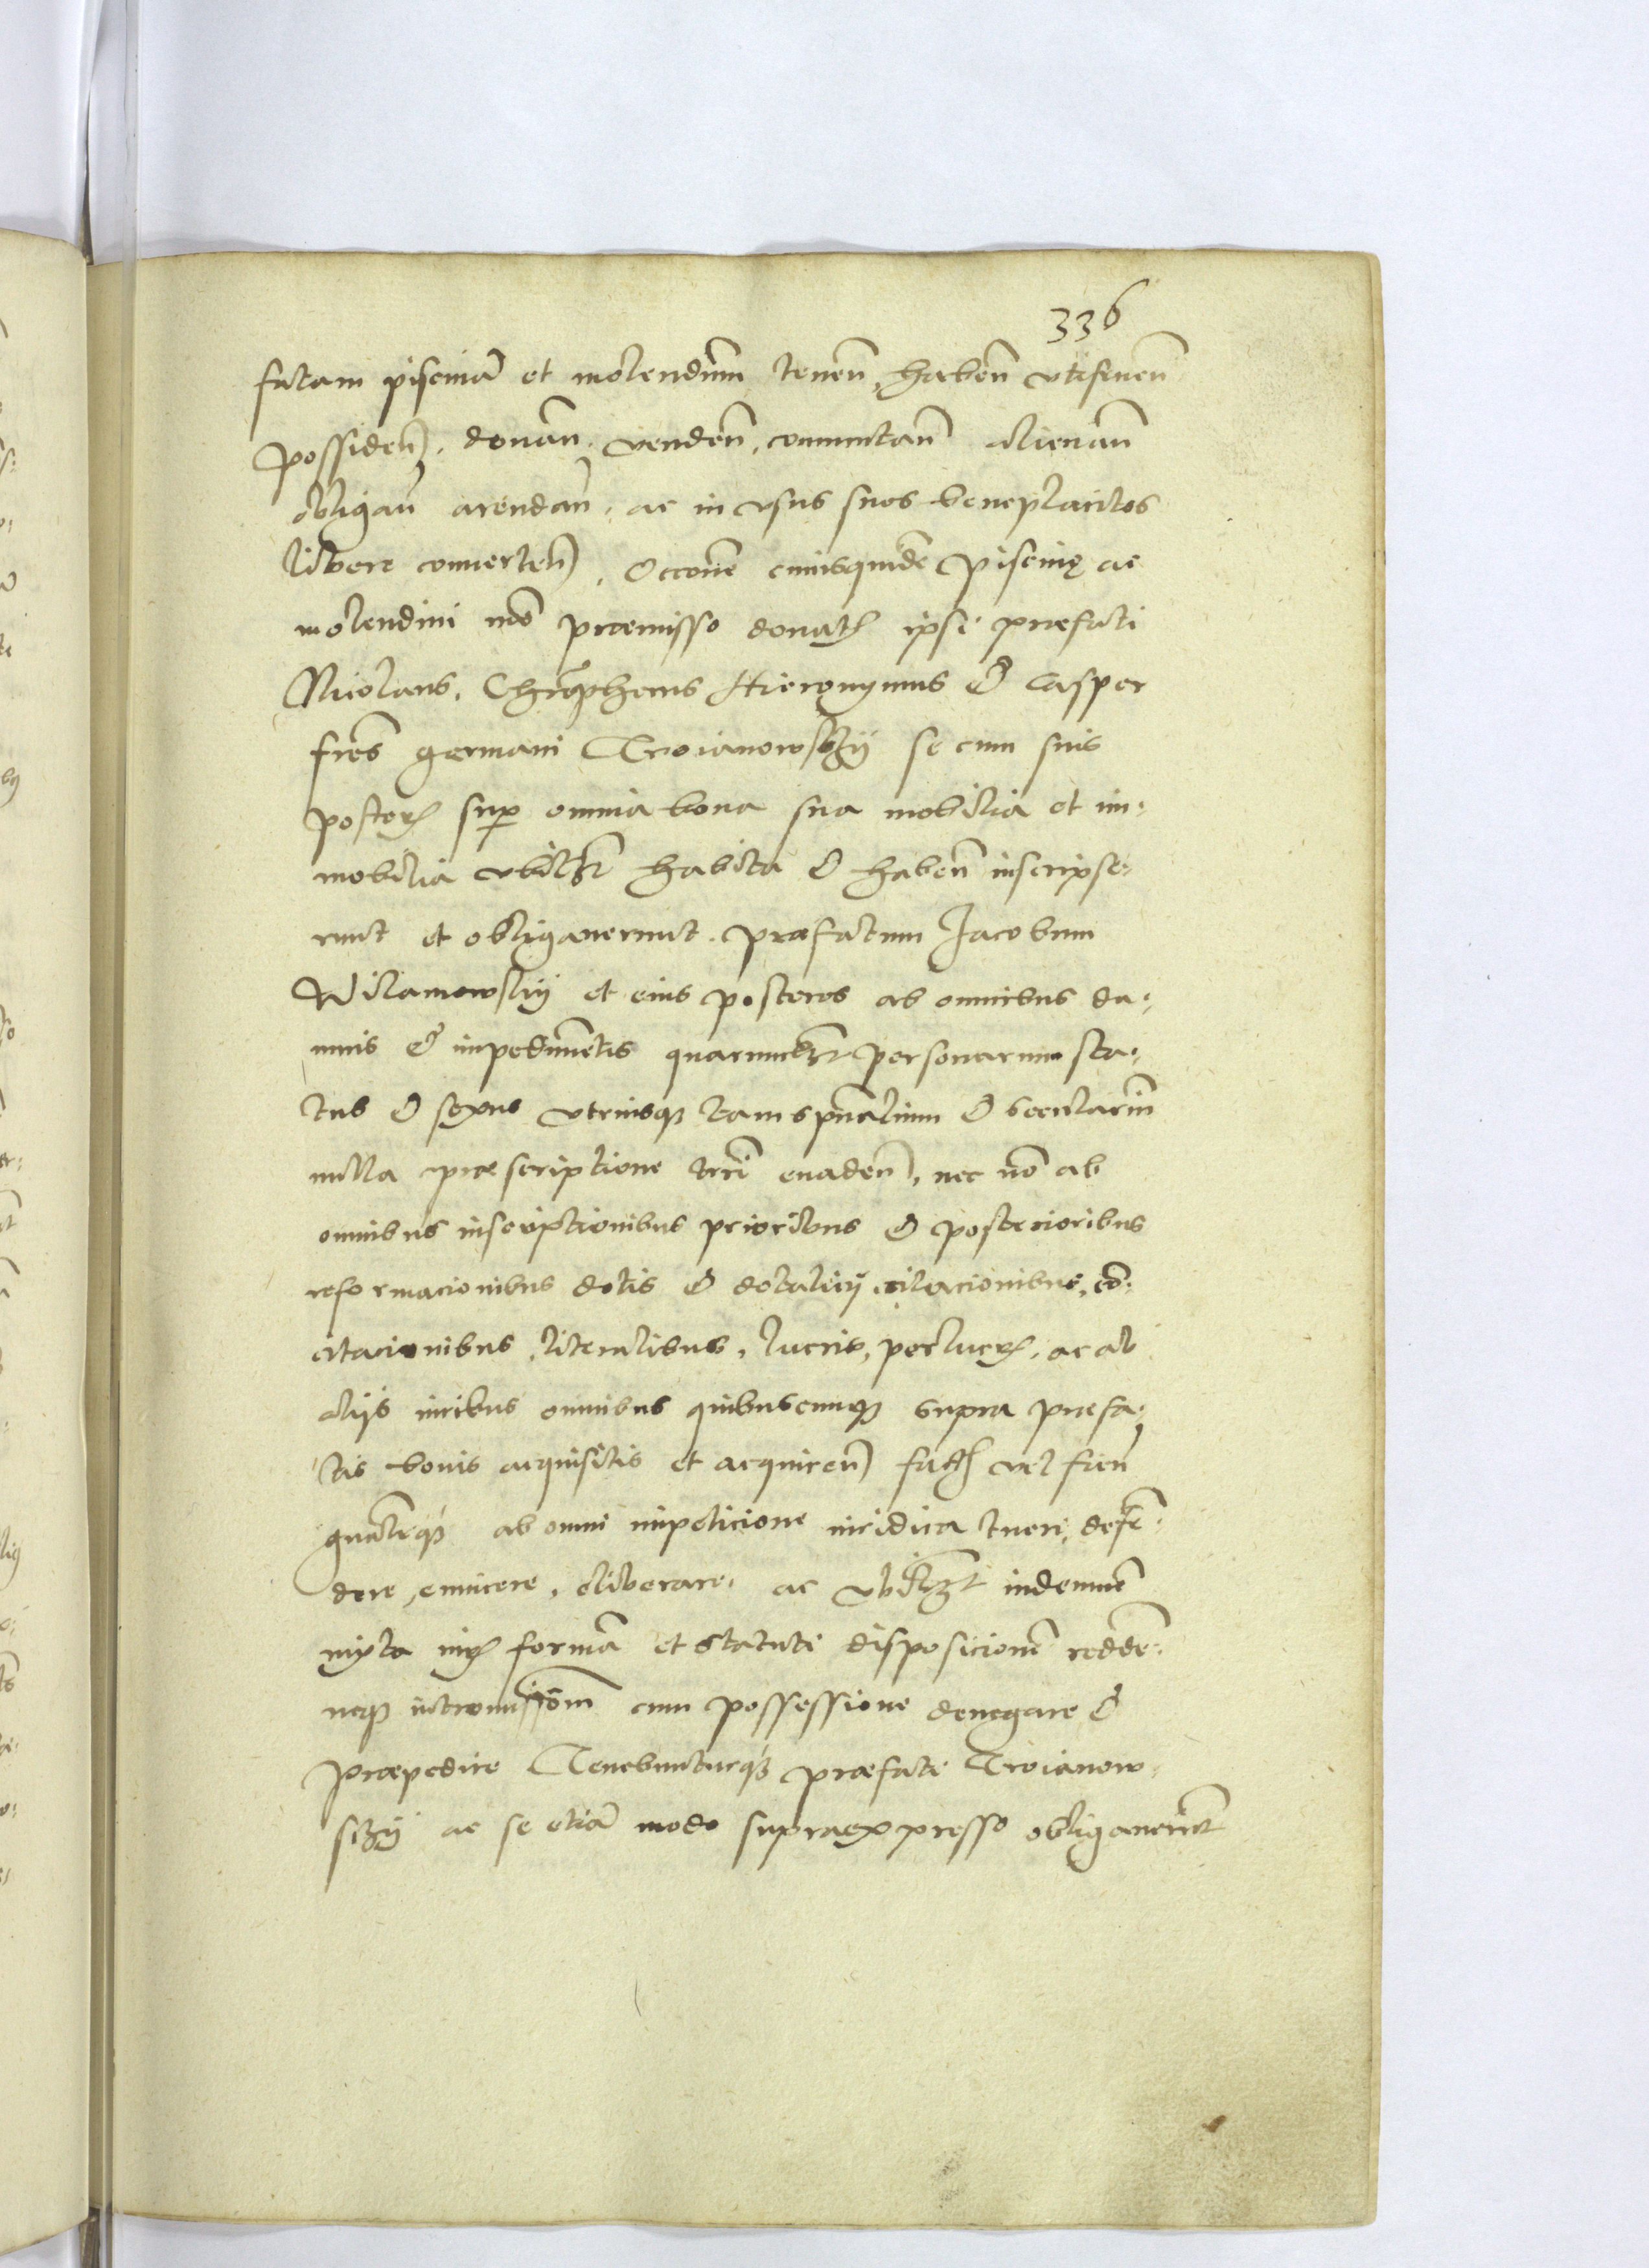 336
fatam pisciná et molendinū tenen̄, haben̄ vtifruen̄
possiden̄, donan̄, venden̄, comutan̄ alienan̄
obligan̄ arendan̄, ac in vsus suos beneplacitos
libere conuerten̄, Occone cuiusquidē Piscinę ac
molendini mō praemisso donatꝭ ipsi praefati
Nicolaus, Chrophorus Hieronymus & Casper
fres germani Troianowskÿ se cum suis
posterꝭ sup omnia bona sua mobilia et im-
mobilia vbilt habita & haben̄ inscripse-
runt et obligauerunt. praefatum Jacobum
Wilamowskÿ et eius posteros ab omnibus da-
mnis & impedimētis quarumlt personarum sta-
tus & sexus vtriusqꝫ tam spūalium & seculariū
nulla praescriptione trrī euaden̄, nec nō ab
omnibus inscriptionibus prioribus & posterioribus
reformacionibus dotis & dotalicÿ citacionibus, cō-
citacionibus, literalibus, lucris, perlucrꝭ, ac ab
alijs iuribus omnibus quibuscunqꝫ supra praefa-
tis bonis acquisitis et acquiren̄ factꝭ vel fien̄
gnāliqꝫ ab omni impeticione iuridica tueri, defē-
dere, euincere, eliberare, ac vbilzt indemnē
iuxta iurꝭ formā et statuti disposicionē reddē-
neqꝫ intromissiom̄ cum possessione denegare &
praepedire Tenebunturqꝫ praefati Troianow-
skÿ ac se etiā modo supraexpresso obligauerūt